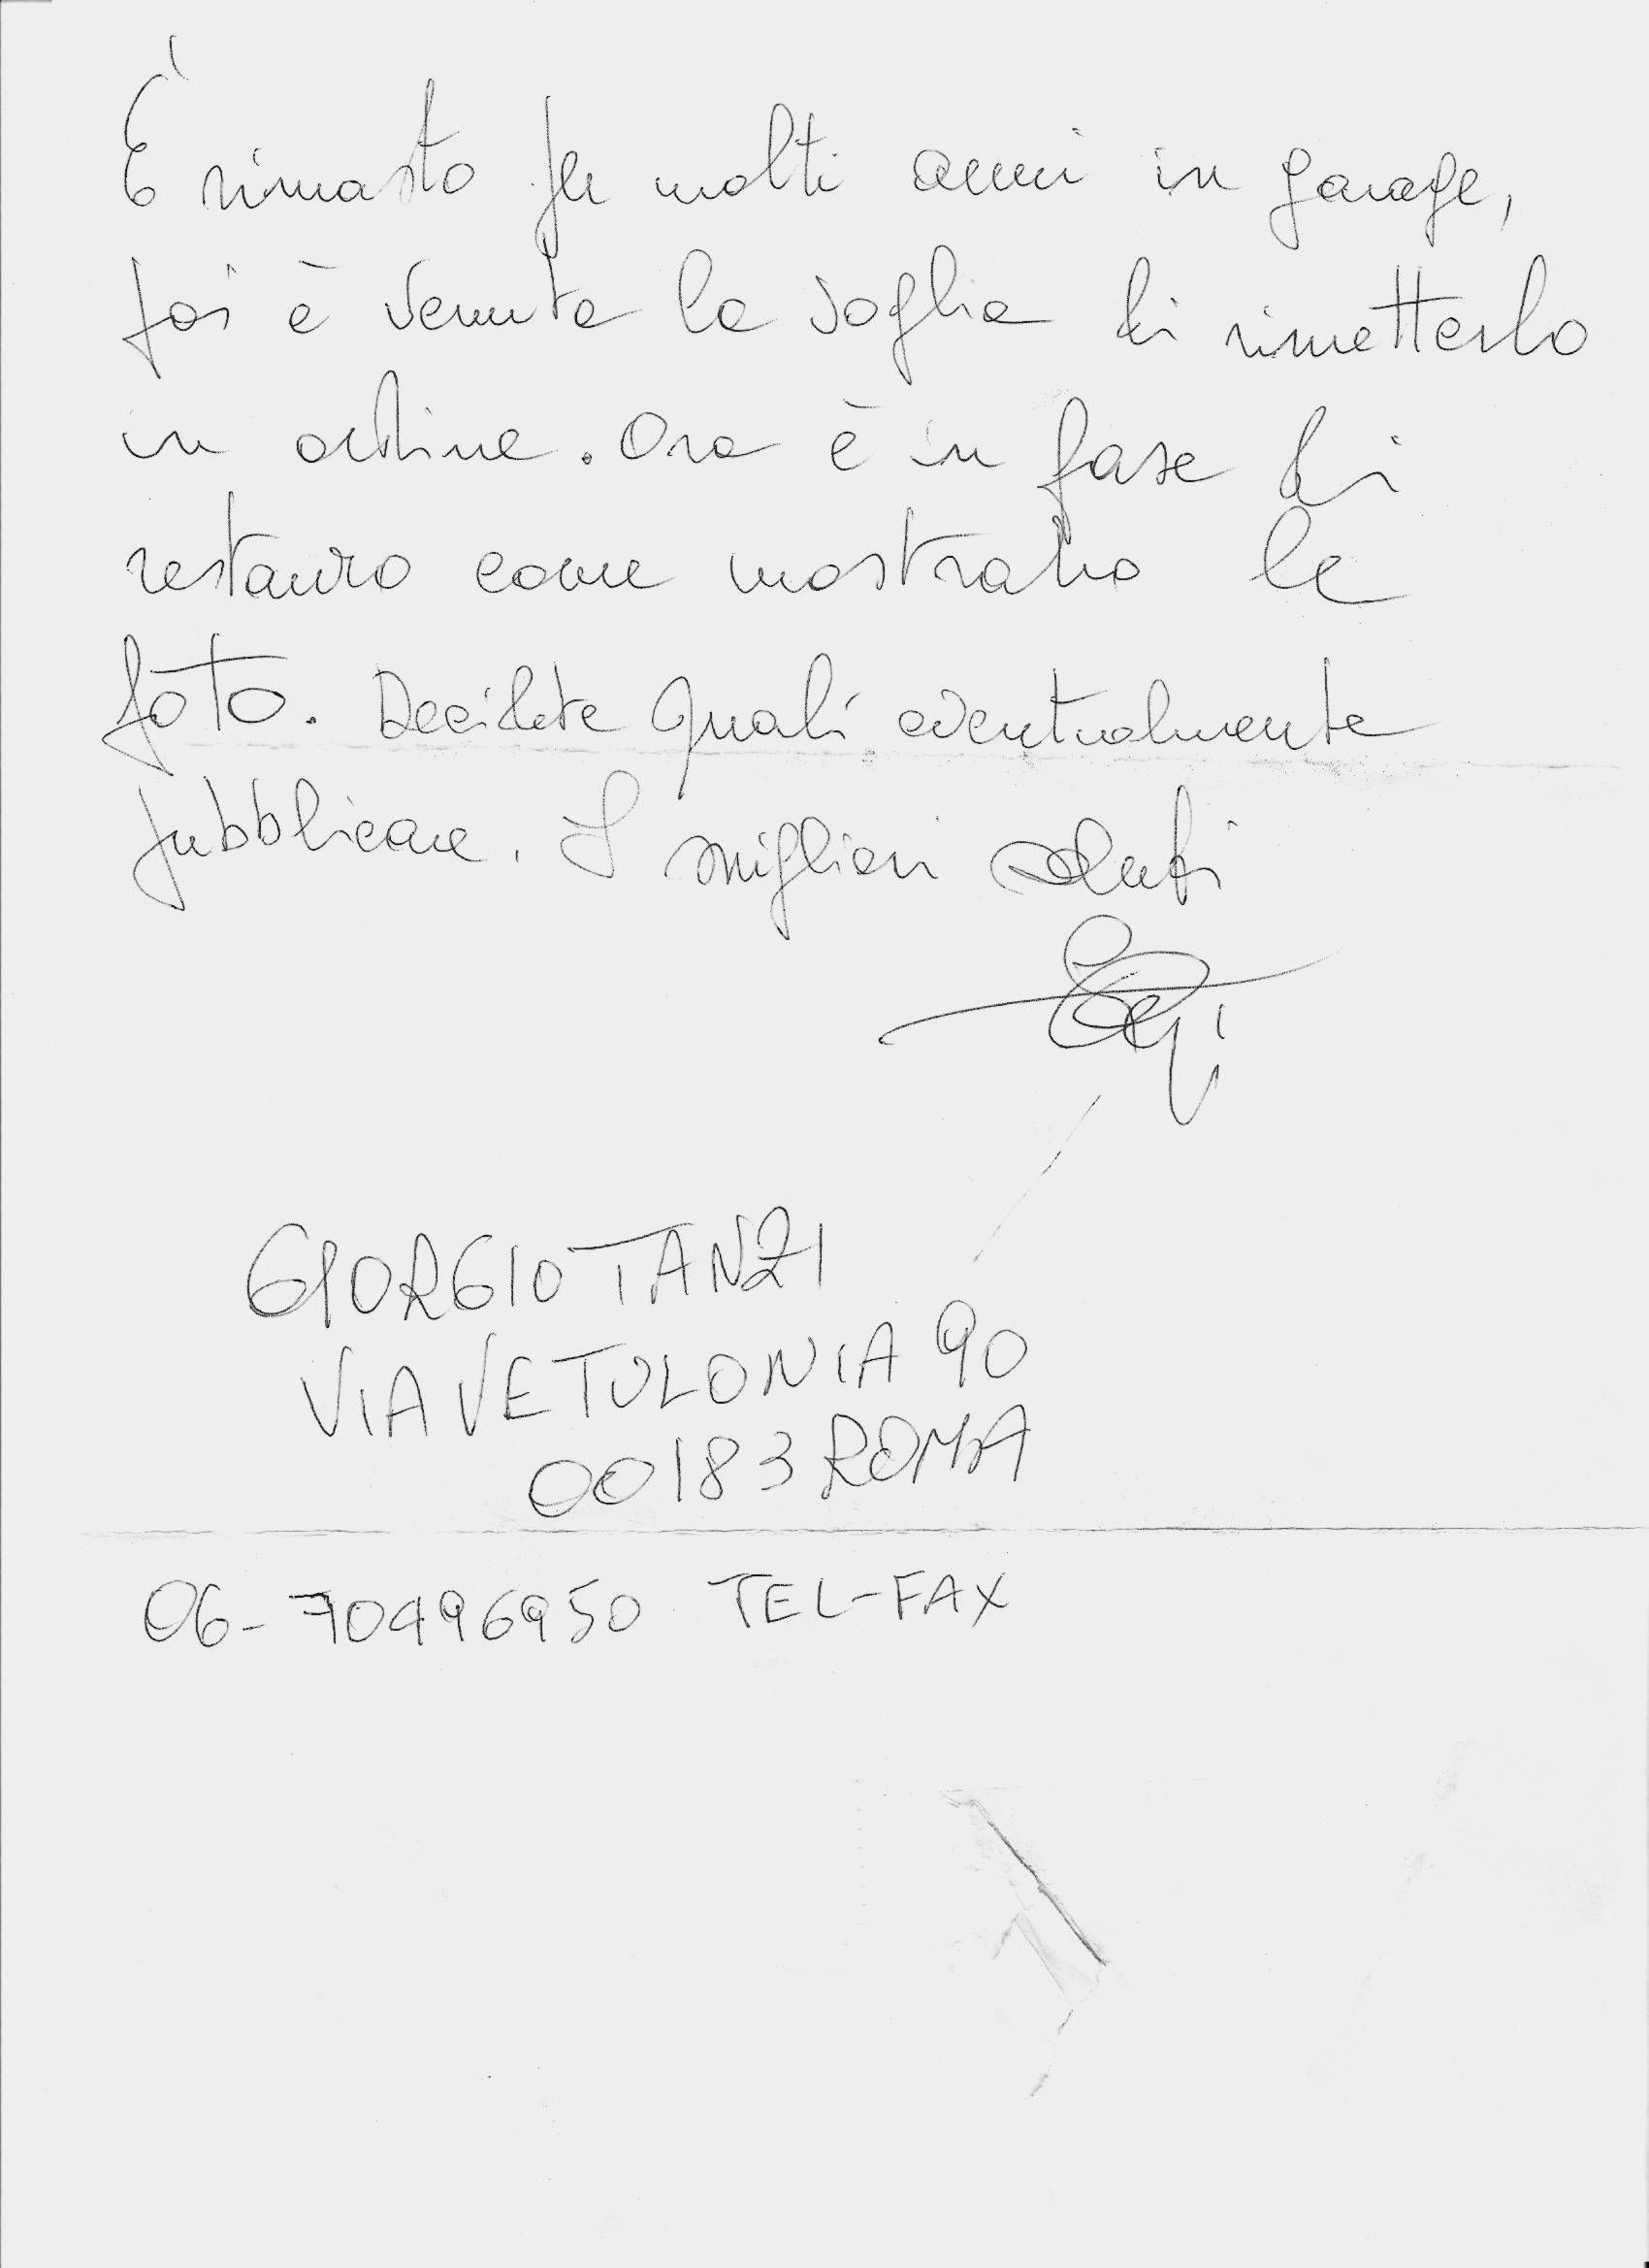 È rimasto per molti anni in garage,
poi è venuta la voglia di rimetterlo
in ordine. Ora è in fase di
restauro come mostrano le
foto. Decidete quali eventualmente
pubblicare. I migliori saluti
GIORGIO TANZI
VIA VETULONIA 90
00183 ROMA
06-70496950 TEL-FAX